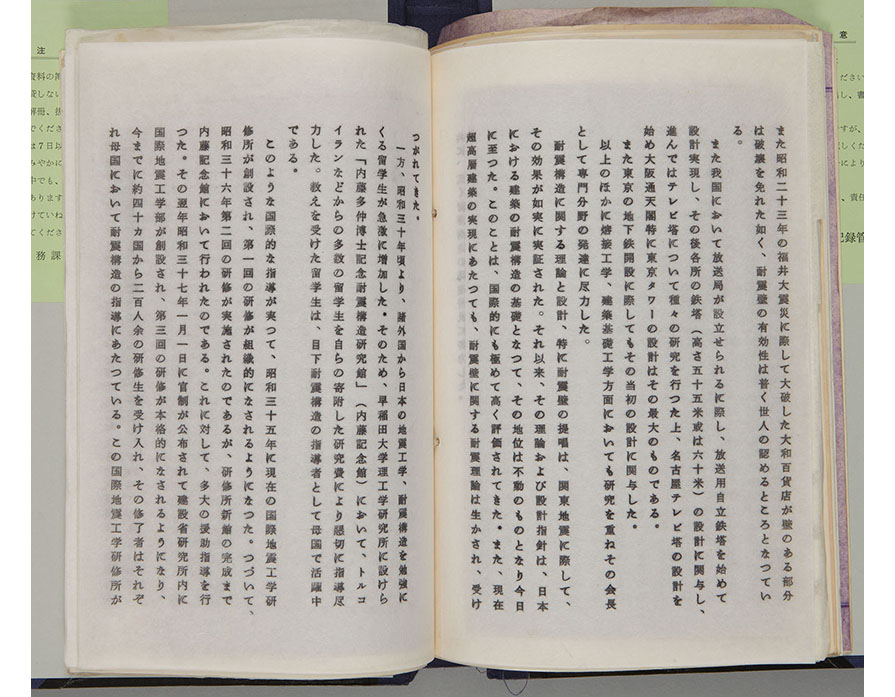 また昭和二十三年の福井大震災に際して大破した大和百貨店が壁のある部分
は破壊を免れた如く、耐震壁の有効性は普く世人の認めるところとなつてい
る。
また我国において放送局が設立せられるに際し、放送用自立鉄塔を始めて
設計実現し、その後各所の鉄塔（高さ五十五米或は六十米）の設計に関与し、
進んではテレビ塔について種々の研究を行つた上、名古屋テレビ塔の設計を
始め大阪通天閣特に東京タワーの設計はその最大のものである。
また東京の地下鉄開設に際してもその当初の設計に関与した。
以上のほかに熔接工学、建築基礎工学方面においても研究を重ねその会長
として専門分野の発達に尽力した。
耐震構造に関する理論と設計、特に耐震壁の提唱は、関東地震に際して、
その効果が如実に実証された。それ以来、その理論および設計指針は、日本
における建築の耐震構造の基礎となつて、その地位は不動のものとなり今日
に至つた。このことは、国際的にも極めて高く評価されてきた。また、現在
超高層建築の実現にあたつても、耐震壁に関する耐震理論は生かされ、受け
つがれてきた。
一方、昭和三十年頃より、諸外国から日本の地震工学、耐震構造を勉強に
くる留学生が急激に増加した。そのため、早稲田大学理工学研究所に設けら
れた「内藤多仲博士記念耐震構造研究館」（内藤記念館）において、トルコ
イランなどからの多数の留学生を自らの寄附した研究費により懇切に指導尽
力した。教えを受けた留学生は、目下耐震構造の指導者として母国で活躍中
である。
このような国際的な指導が実つて、昭和三十五年に現在の国際地震工学研
修所が創設され、第一回の研修が組織的になされるようになつた。つづいて、
昭和三十六年第二回の研修が実施されたのであるが、研修所新館の完成まで
内藤記念館において行われたのである。これに対して、多大の援助指導を行
つた。その翌年昭和三十七年一月一日に官制が公布されて建設省研究所内に
国際地震工学部が創設され、第三回の研修が本格的になされるようになり、
今までに約四十カ国から二百人余の研修生を受け入れ、その修了者はそれぞ
れ母国において耐震構造の指導にあたつている。この国際地震工学研修所が
注
意
務課
記録管